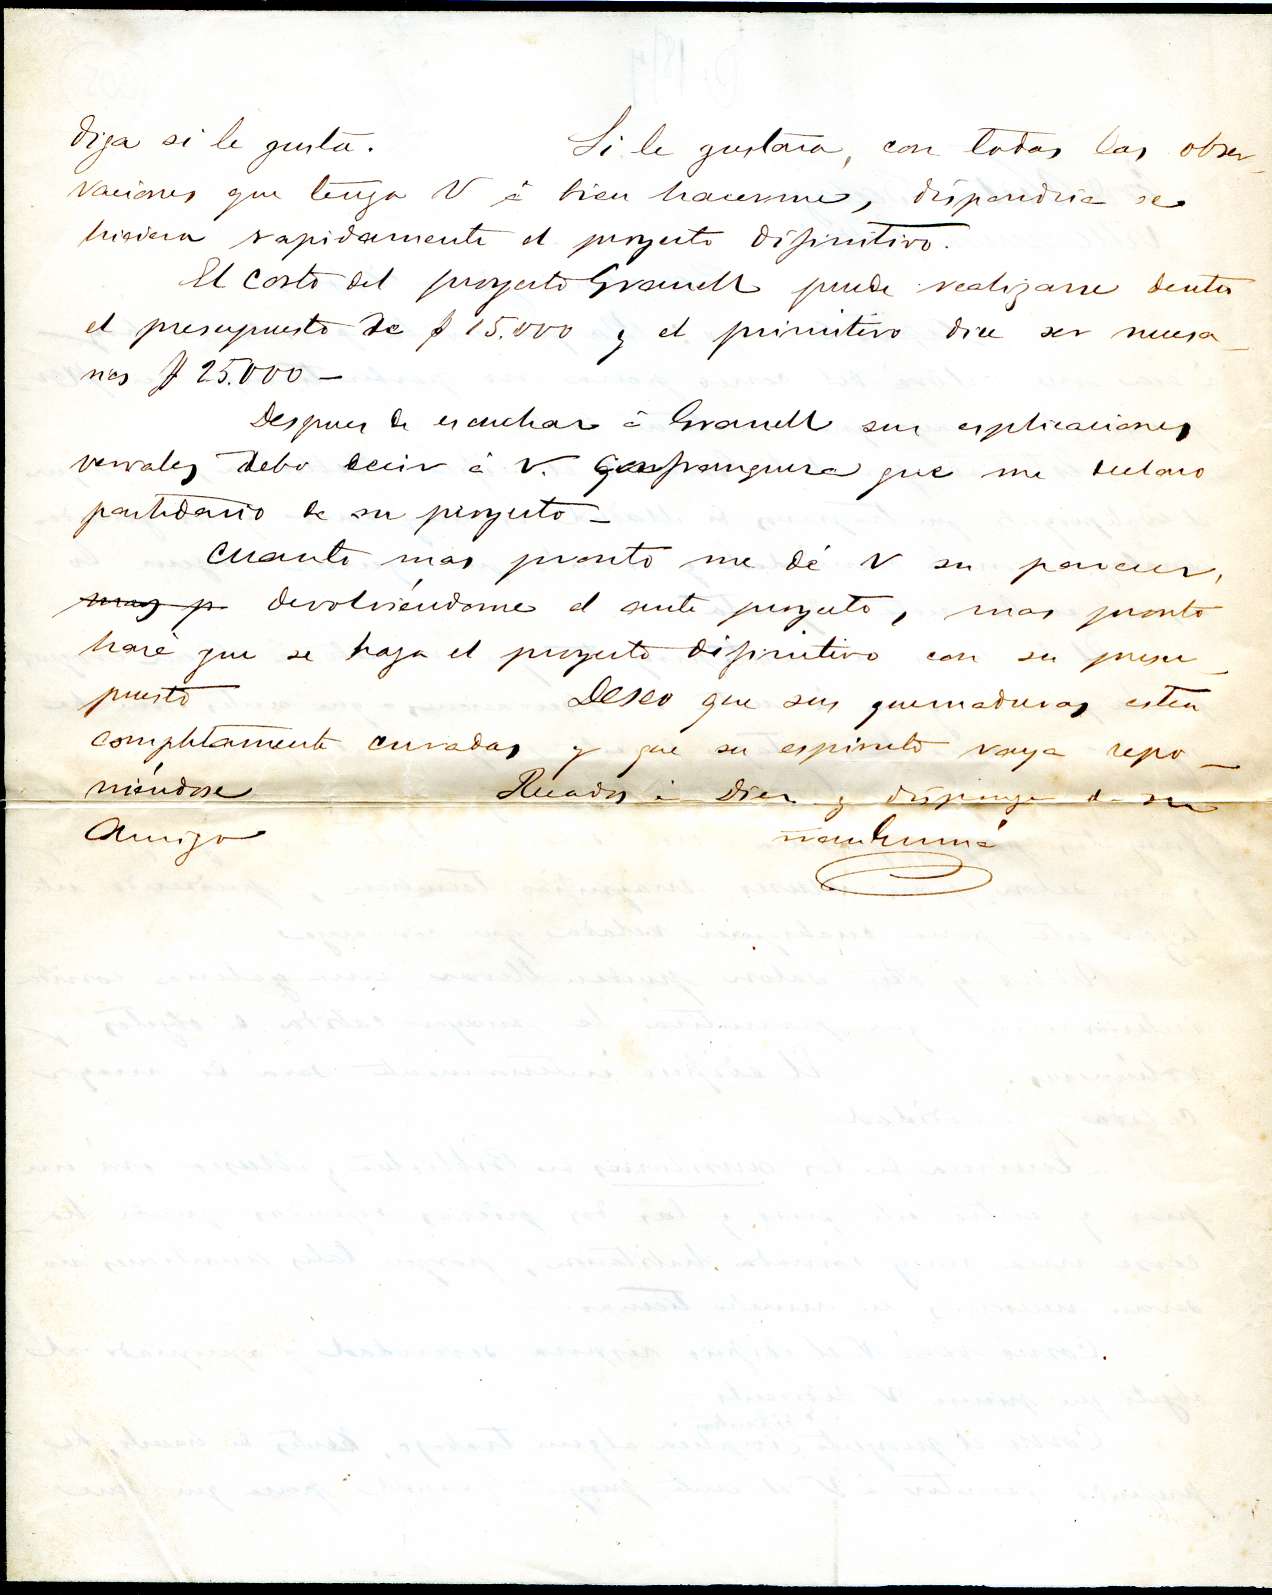 diga si le gusta. Si le gustara, con todas las obser-
vaciones que tenga V à bien hacerme, dispondria se
hiciera rapidamente el proyecto difinitivo.
El costo del proyecto Granell puede realizarse dentro
el presupuesto de $ 15.000 y el primitivo dice ser necesa-
rios $ 25.000 -
Despues de escuchar à Granell sus esplicaciones
vervales debo decir à V. franquesa que me declaro
partidario de su proyecto -
Cuanto mas pronto me dé V su parecer,
mas p devolviéndome el proyecto, mas pronto
haré que se haga el proyecto difinitivo con su presu-
puesto Deseo que sus quemaduras esten
completamente curadas y que su espiritu vaya repo-
niéndose Recados à y disponga de su
Amigo